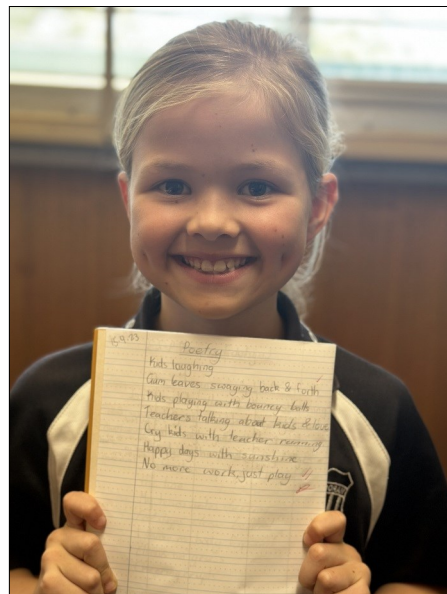 Poetry
Kids laughing
Gum leaves swaying back & forth
Kids playing with bouncy balls
Teachers talking about kids &
Cry kids with teacher running
Happy days with sunshine
No more work, just play